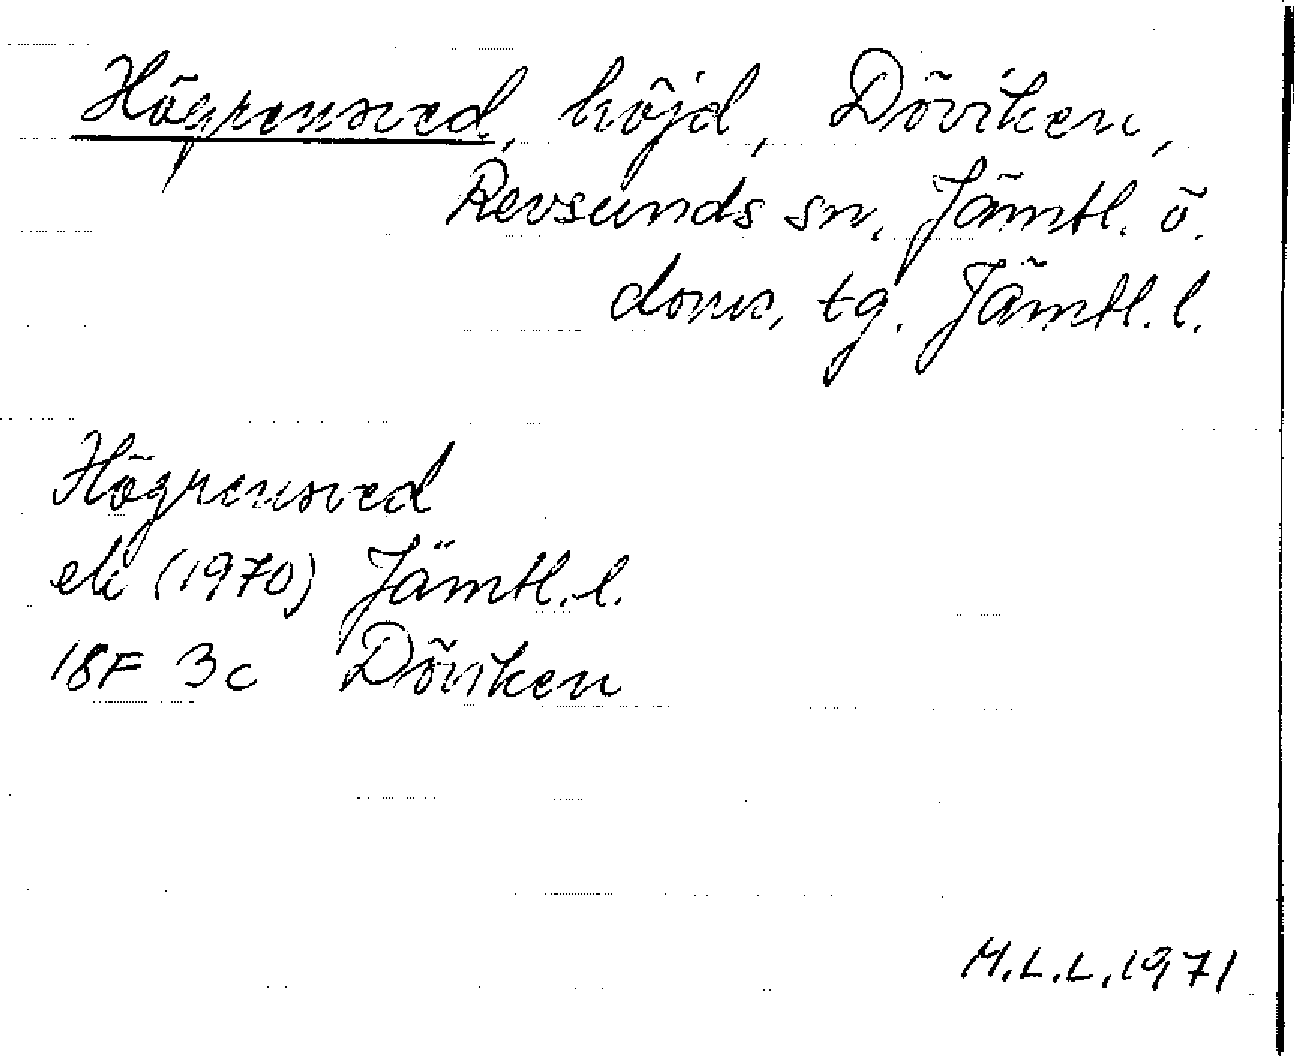 Högrensved, höjd, Döviken,
Revsunds sn, Jämtl. ö.
doms, tg. Jämtl. l.
Högrensved
ek (1970) Jämtl. l.
18F 3c Döviken
M.L.L. 1971